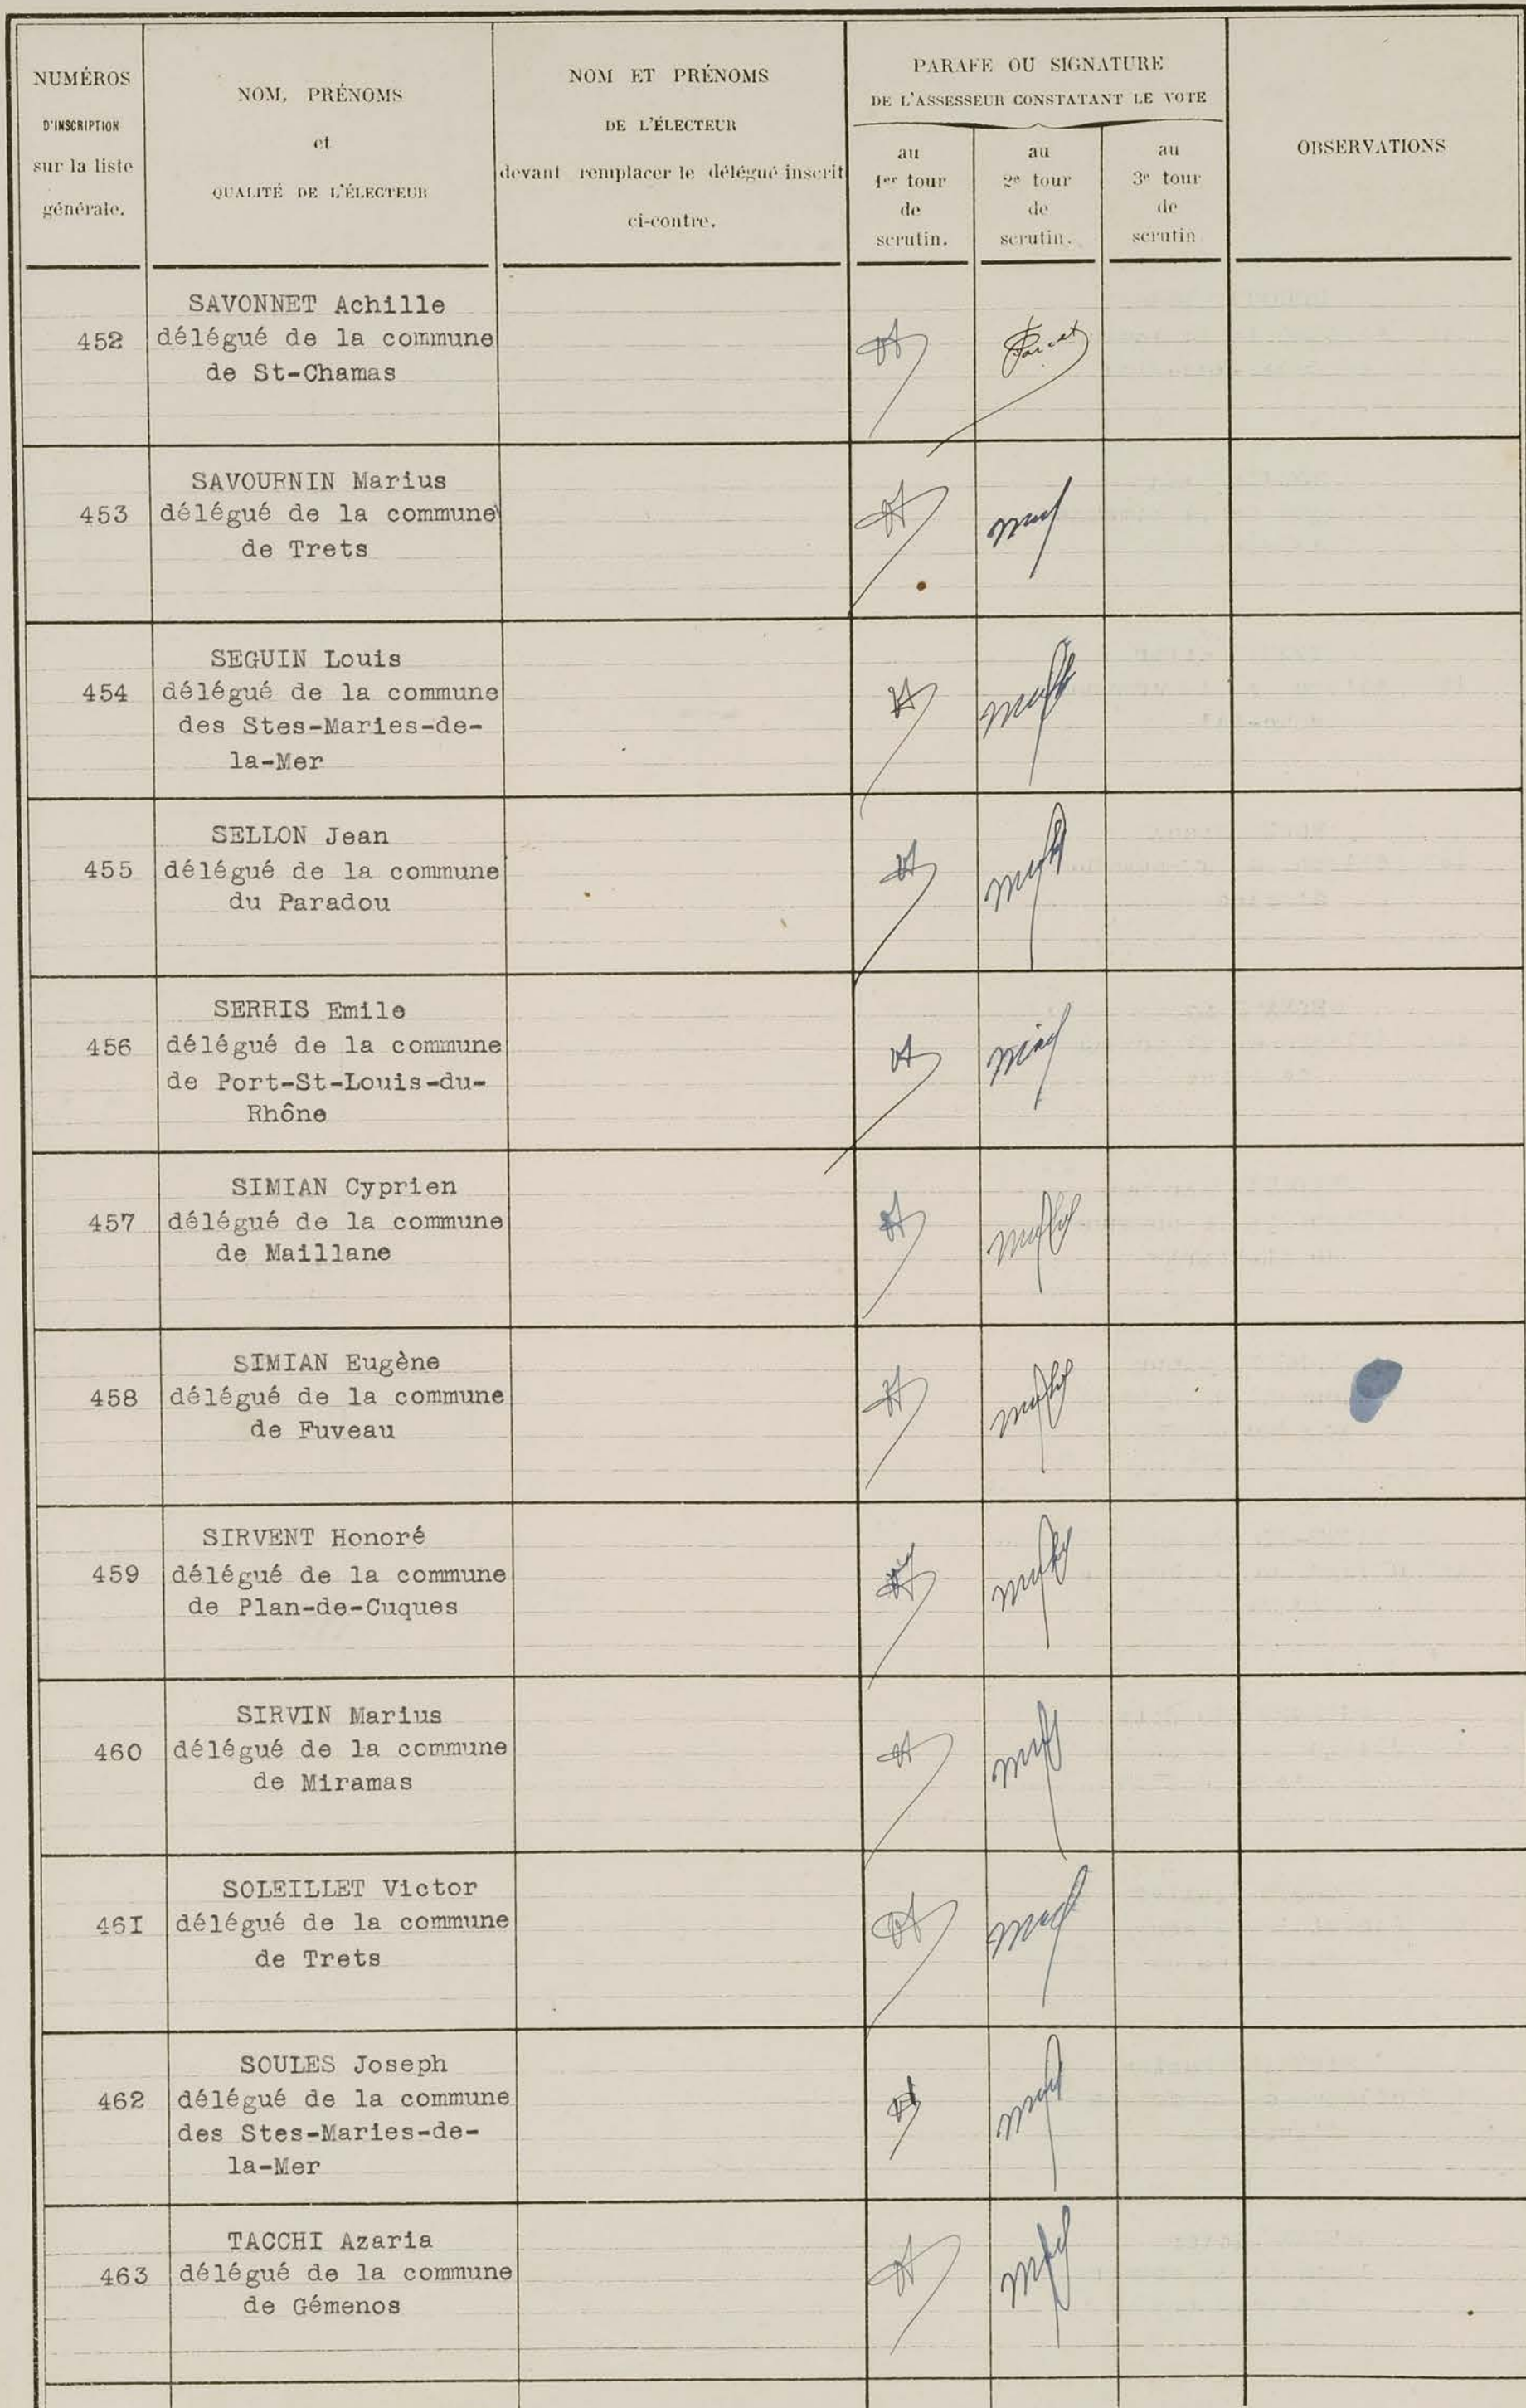 NUMÉROS
D'INSCRIPTION
sur la liste
générale.
NOM, PRÉNOMS
et
QUALITÉ DE L'ÉLECTEUR
NOM ET PRÉNOMS
DE L'ÉLECTEUR
devant remplacer le délégué inscrit
ci-contre.
PARAFE OU SIGNATURE
DE L'ASSESSEUR CONSTATANT LE VOTE
au
1er tour
de
scrutin.
au
2e tour
de
scrutin.
au
3e tour
de
scrutin
OBSERVATIONS
SAVONNET Achille
452 délégué de la commune
de St-Chamas
SAVOURNIN Marius
453 délégué de la commune
de Trets
SEGUIN Louis
454 délégué de la commune
des Stes-Maries-de-
la-Mer
SELLON Jean
455 délégué de la commune
du Paradou
SERRIS Emile
456 délégué de la commune
de Port-St-Louis-du-
Rhône
SIMIAN Cyprien
457 délégué de la commune
de Maillane
SIMIAN Eugène
458 délégué de la commune
de Fuveau
SIRVENT Honoré
459 délégué de la commune
de Plan-de-Cuques
SIRVIN Marius
460 délégué de la commune
de Miramas
SOLEILLET Victor
46I délégué de la commune
de Trets
SOULES Joseph
462 délégué de la commune
des Stes-Maries-de-
la-Mer
TACCHI Azaria
463 délégué de la commune
de Gémenos